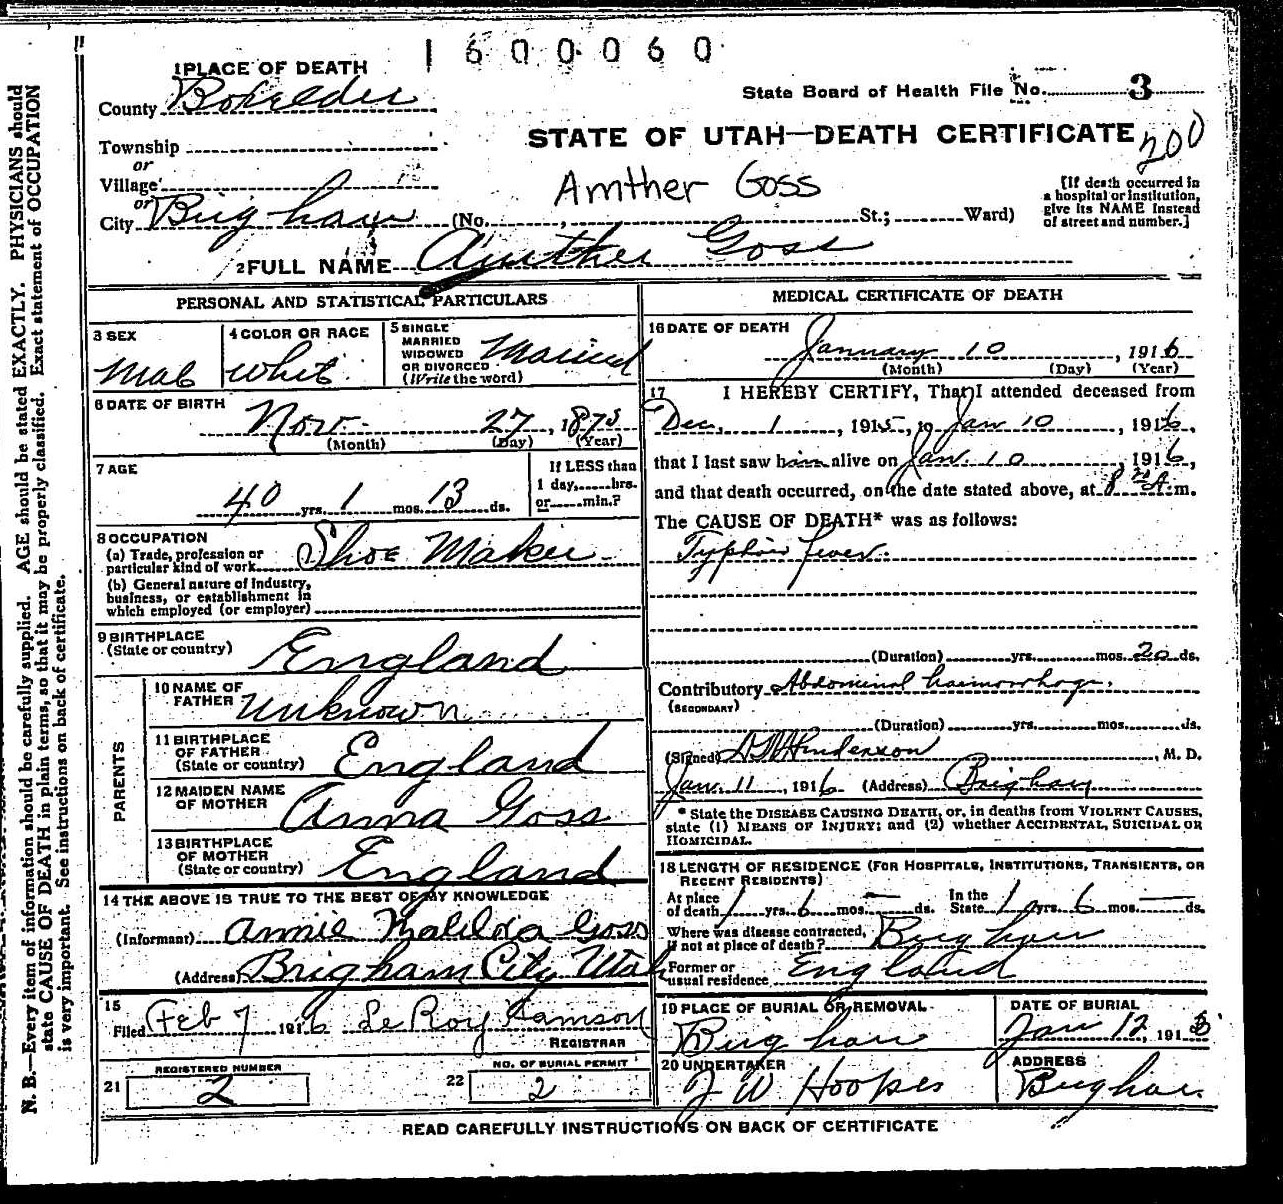 1600060
1 PLACE OF DEATH
State Board of Health File No. 3
County Boxelder
STATE OF UTAH—DEATH CERTIFICATE
200
Township
or
Village
or
City Brigham (No. , St.; Ward)
Amther Goss
[If death occurred in
a hospital or institution,
give its NAME instead
of street and number.]
2 FULL NAME Amther Goss
PERSONAL AND STATISTICAL PARTICULARS
3 SEX
Male
4 COLOR OR RACE
White
5 SINGLE
MARRIED
WIDOWED
OR DIVORCED
(Write the word)
Married
6 DATE OF BIRTH
Nov. 27, 1875
(Month) (Day) (Year)
7 AGE
40 yrs. 1 mos. 13 ds.
If LESS than
1 day,.....hrs.
or.....min.?
8 OCCUPATION
(a) Trade, profession or
particular kind of work Shoe Maker
(b) General nature of Industry,
business, or establishment in
which employed (or employer)
9 BIRTHPLACE
(State or country)
England
PARENTS
10 NAME OF
FATHER
Unknown
11 BIRTHPLACE
OF FATHER
(State or country)
England
12 MAIDEN NAME
OF MOTHER
Anna Goss
13 BIRTHPLACE
OF MOTHER
(State or country)
England
14 THE ABOVE IS TRUE TO THE BEST OF MY KNOWLEDGE
(Informant) Annie Malilda Goss
(Address) Brigham City Utah
15
Filed Feb 7 1916 LeRoy
REGISTRAR
21
REGISTERED NUMBER
2
22
NO. OF BURIAL PERMIT
2
MEDICAL CERTIFICATE OF DEATH
16 DATE OF DEATH
January 10, 1916
(Month) (Day) (Year)
17 I HEREBY CERTIFY, That I attended deceased from
Dec. 1, 1915, to Jan 10, 1916,
that I last saw him alive on Jan. 10, 1916,
and that death occurred, on the date stated above, at 8 A.m.
The CAUSE OF DEATH* was as follows:
Typhoid Fever.
(Duration) yrs. mos. 20 ds.
Contributory Abdominal haemorrhage.
(SECONDARY)
(Duration) yrs. mos. ds.
(Signed) Henderson, M. D.
Jan. 11, 1916 (Address) Brigham
* State the DISEASE CAUSING DEATH, or, in deaths from VIOLENT CAUSES,
state (1) MEANS OF INJURY; and (2) whether ACCIDENTAL, SUICIDAL OR
HOMICIDAL.
18 LENGTH OF RESIDENCE (FOR HOSPITALS, INSTITUTIONS, TRANSIENTS, OR
RECENT RESIDENTS)
At place
of death 1 yrs. 6 mos. — ds.
In the
State 1 yrs. 6 mos. — ds.
Where was disease contracted,
if not at place of death? Brigham
Former or
usual residence England
19 PLACE OF BURIAL OR REMOVAL
Brigham
DATE OF BURIAL
Jan 12, 1916
20 UNDERTAKER
J W Hoopes
ADDRESS
Brigham
READ CAREFULLY INSTRUCTIONS ON BACK OF CERTIFICATE
N. B.—Every item of information should be carefully supplied. AGE should be stated EXACTLY. PHYSICIANS should
state CAUSE OF DEATH in plain terms, so that it may be properly classified. Exact statement of OCCUPATION
is very important. See instructions on back of certificate.